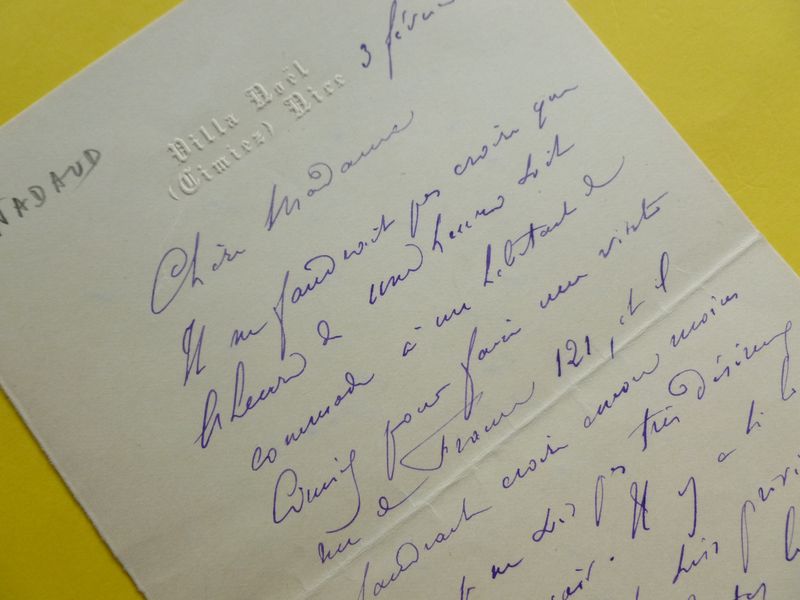 NADAUD
Villa Noël
(Cimiez) Nice
3 févri
Chère Madame
Il ne faudrait pas croire que
l'heure de une heure soit
commode à un habitant de
Cimiez pour faire une visite
rue de France 121, et il
faudrait croire encore moins
ne sois pas très désireux
Il y a si